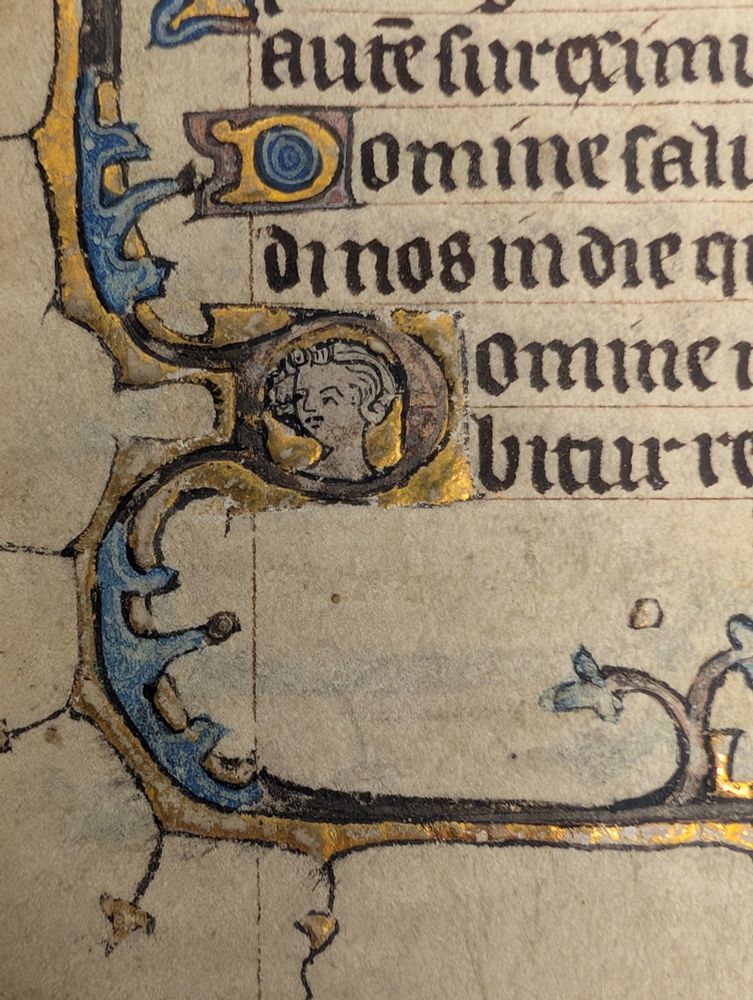 autē surreximu
Domine salu
di nos in die qu
Domine i
bitur re